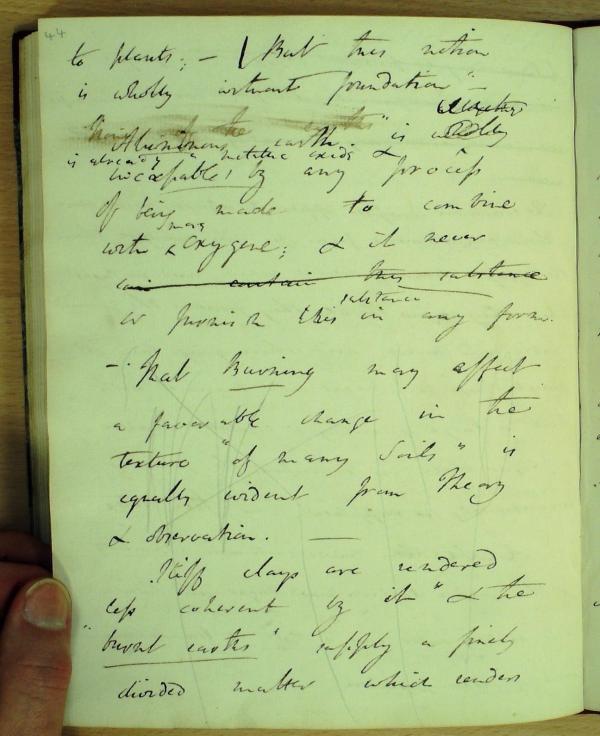 44
to plants; – But this notion
is wholly without foundation" –
Aluminous earth is
is already "metallic oxide &
incapable, by any process
of being made to combine
more
with oxygene; & it never
can contain this substance
substance
or furnish this in any form.
– That Burning may affect
a favorable change in the
texture "of many Soils" is
equally evident from Theory
& observation. —
Stiff clays are rendered
less coherent by it" & the
"burnt earths" supply a finely
divided matter which renders